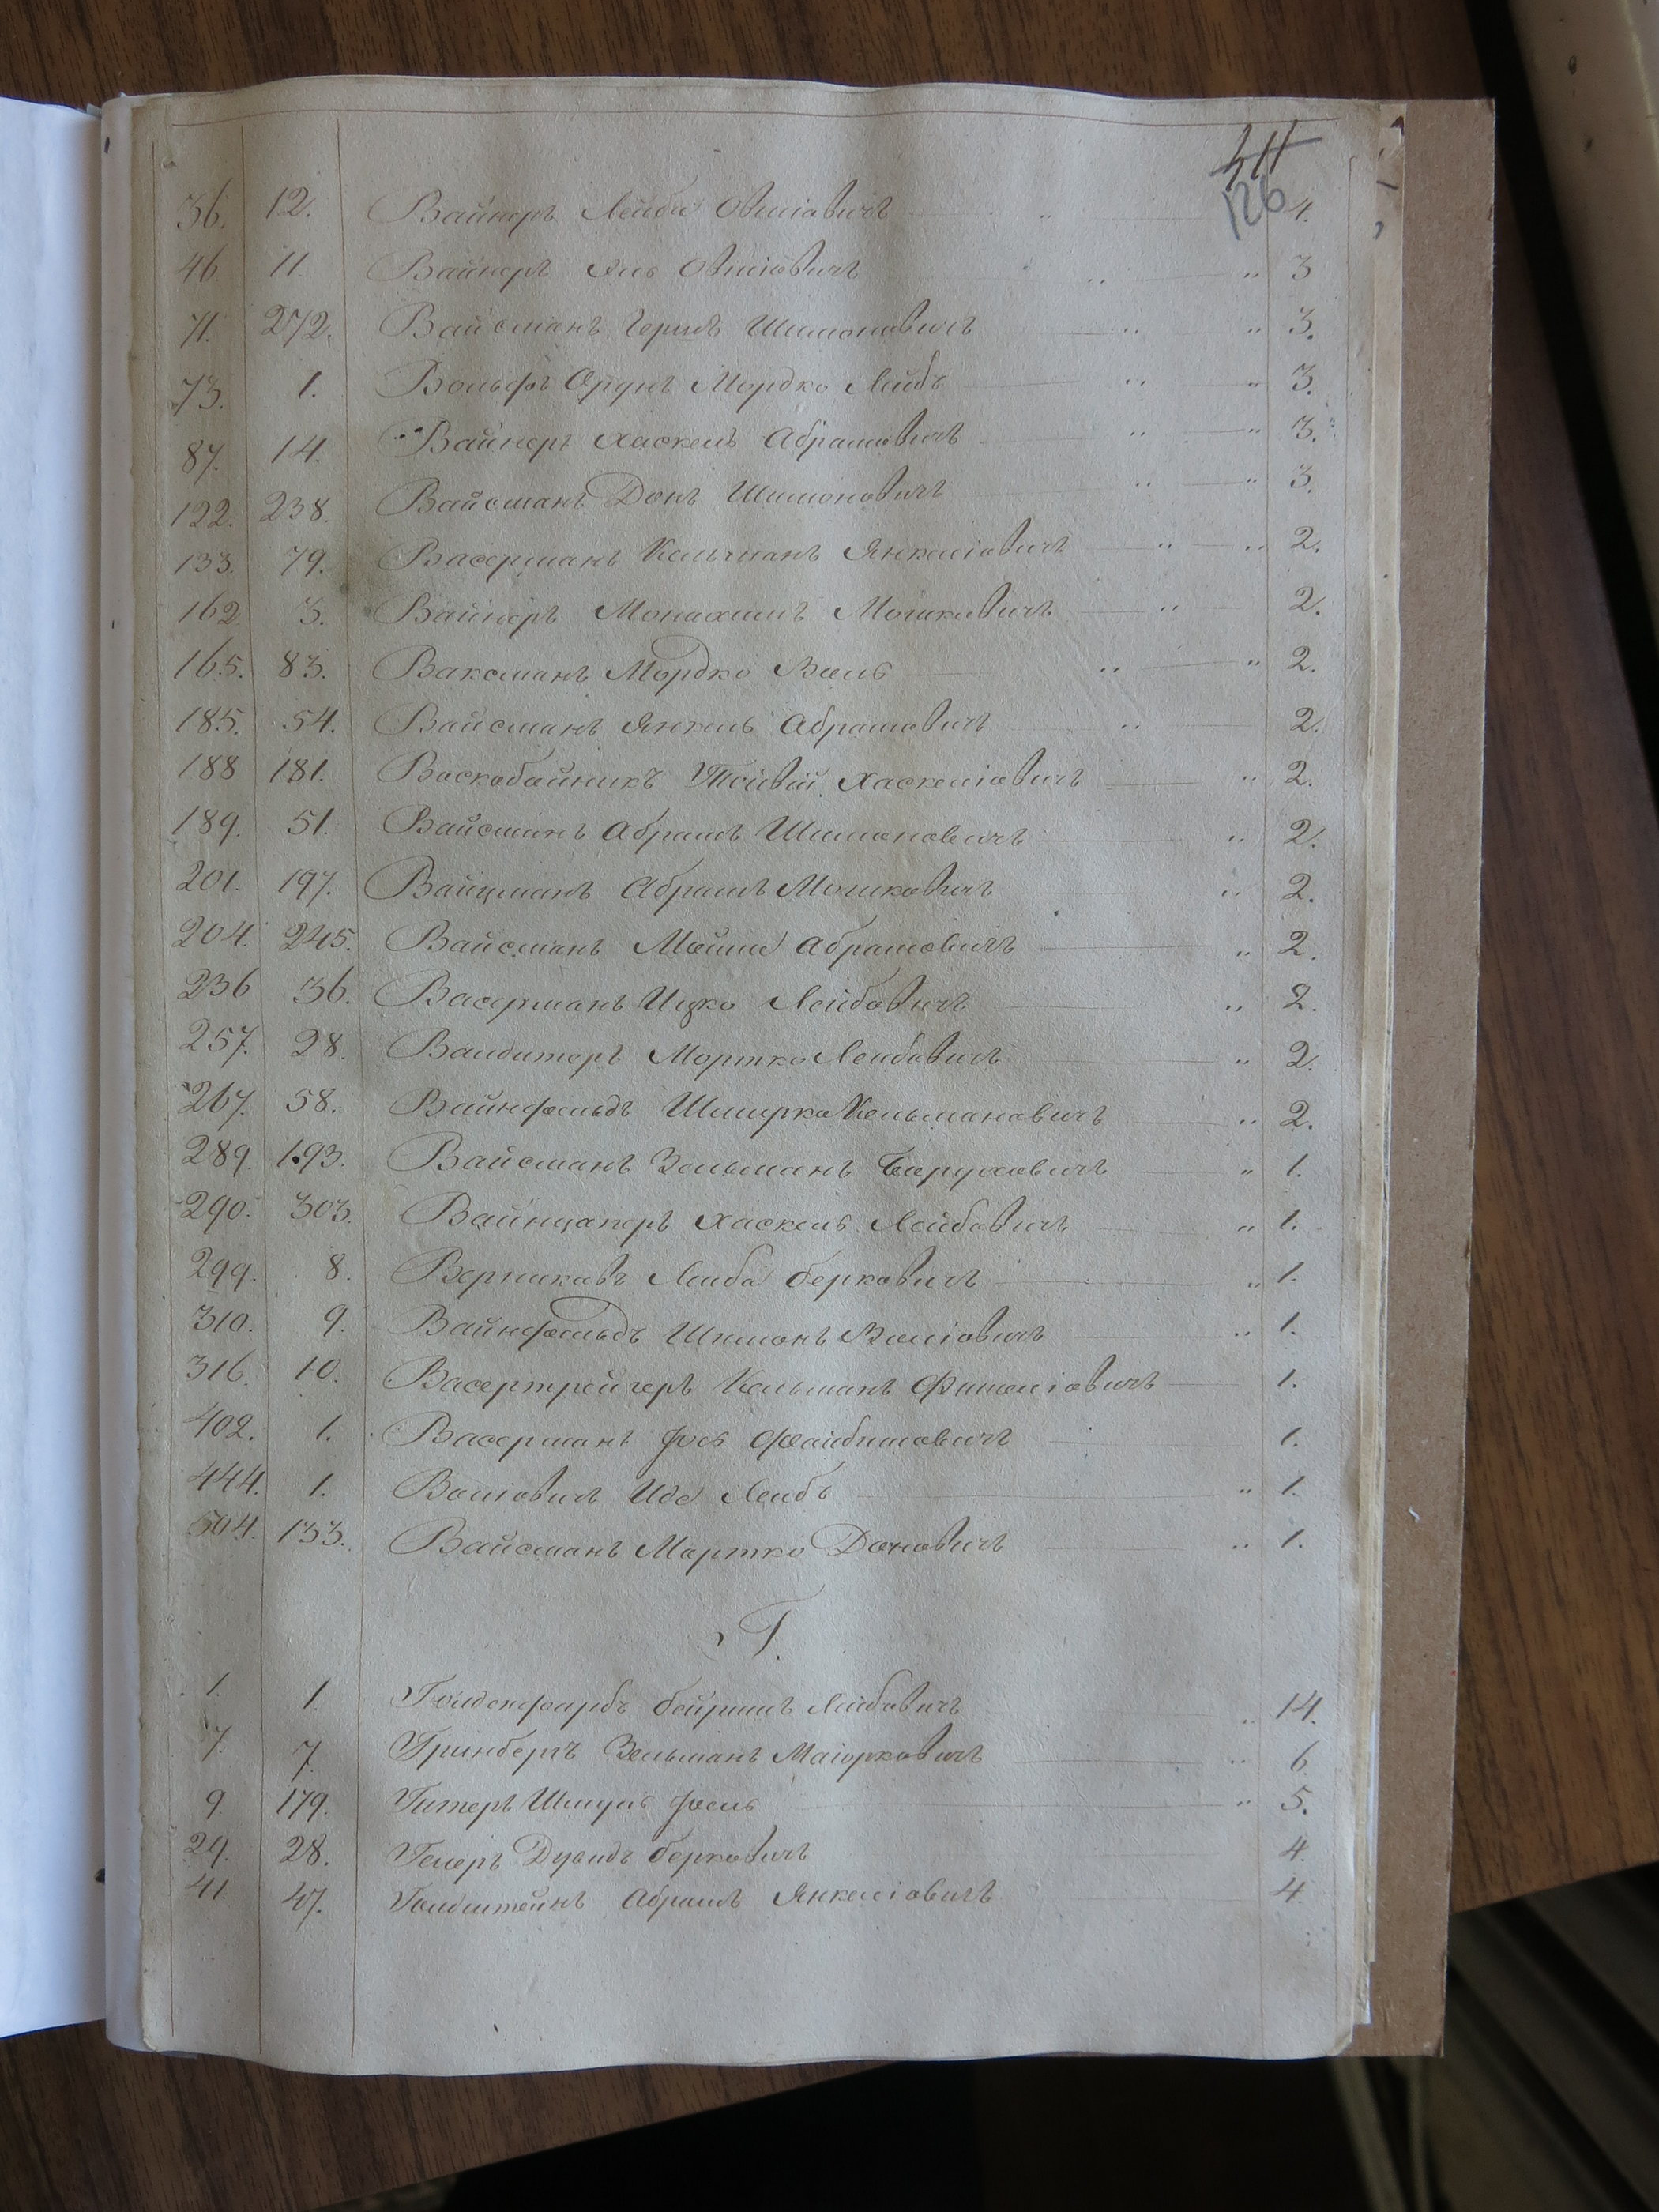 511
126
36. 12. Вайнеръ Лейба Овшіовичъ 4.
46. 11. Вайнеръ Овшіовичъ 3
71. 272. Вайсманъ Гершъ Шимоновичъ 3.
73. 1. Вольфъ Орунъ Мордко Лейбъ 3.
87. 14. Вайнеръ Хаскель Абрамовичъ 3.
122. 238. Вайсманъ Донъ Шимоновичъ 3.
133. 79. Васерманъ Кельманъ Янкеліовичъ 2.
162. 3. Вайнеръ Монахимъ Мошковичъ 2.
165. 83. Ваксманъ Мордко Вель 2.
185. 54. Вайсманъ Янкель Абрамовичъ 2.
188 181. Воскобойникъ Тойвій Хаскеліовичъ 2.
189. 51. Вайсманъ Абрамъ Шимоновичъ 2.
201. 197. Вайцманъ Абрамъ Мошковичъ 2.
204. 245. Вайсманъ Мойша Абрамовичъ 2.
236 36. Васерманъ Ицко Лейбовичъ 2.
257. 28. Мортко Лейбовичъ 2.
267. 58. Вайнфельдъ Шмерко Кельмановичъ 2.
289. 193. Вайсманъ Зельманъ Боруховичъ 1.
290. 303. Вайнцаперъ Хаскель Лейбовичъ 1.
299. 8. Верниковъ Лейба Берковичъ 1.
310. 9. Вайнфельдъ Шимонъ Веліовичъ 1.
316. 10. Васертрейгеръ Кельманъ Фишеліовичъ 1.
402. 1. Васерманъ Файбишовичъ 1.
444. 1. Воліовичъ Иде Лейбъ 1.
504. 133. Вайсманъ Мортко Доновичъ 1.
Г.
1. 1 Голденфарбъ Бейришъ Лейбовичъ 14.
7. 7 Гринбергъ Зельманъ Маіорковичъ 6.
9. 179. Гитеръ Шмуль 5.
29. 28. Дувидъ Берковичъ 4.
41. 47. Голдштейнъ Абрамъ Янкеліовичъ 4